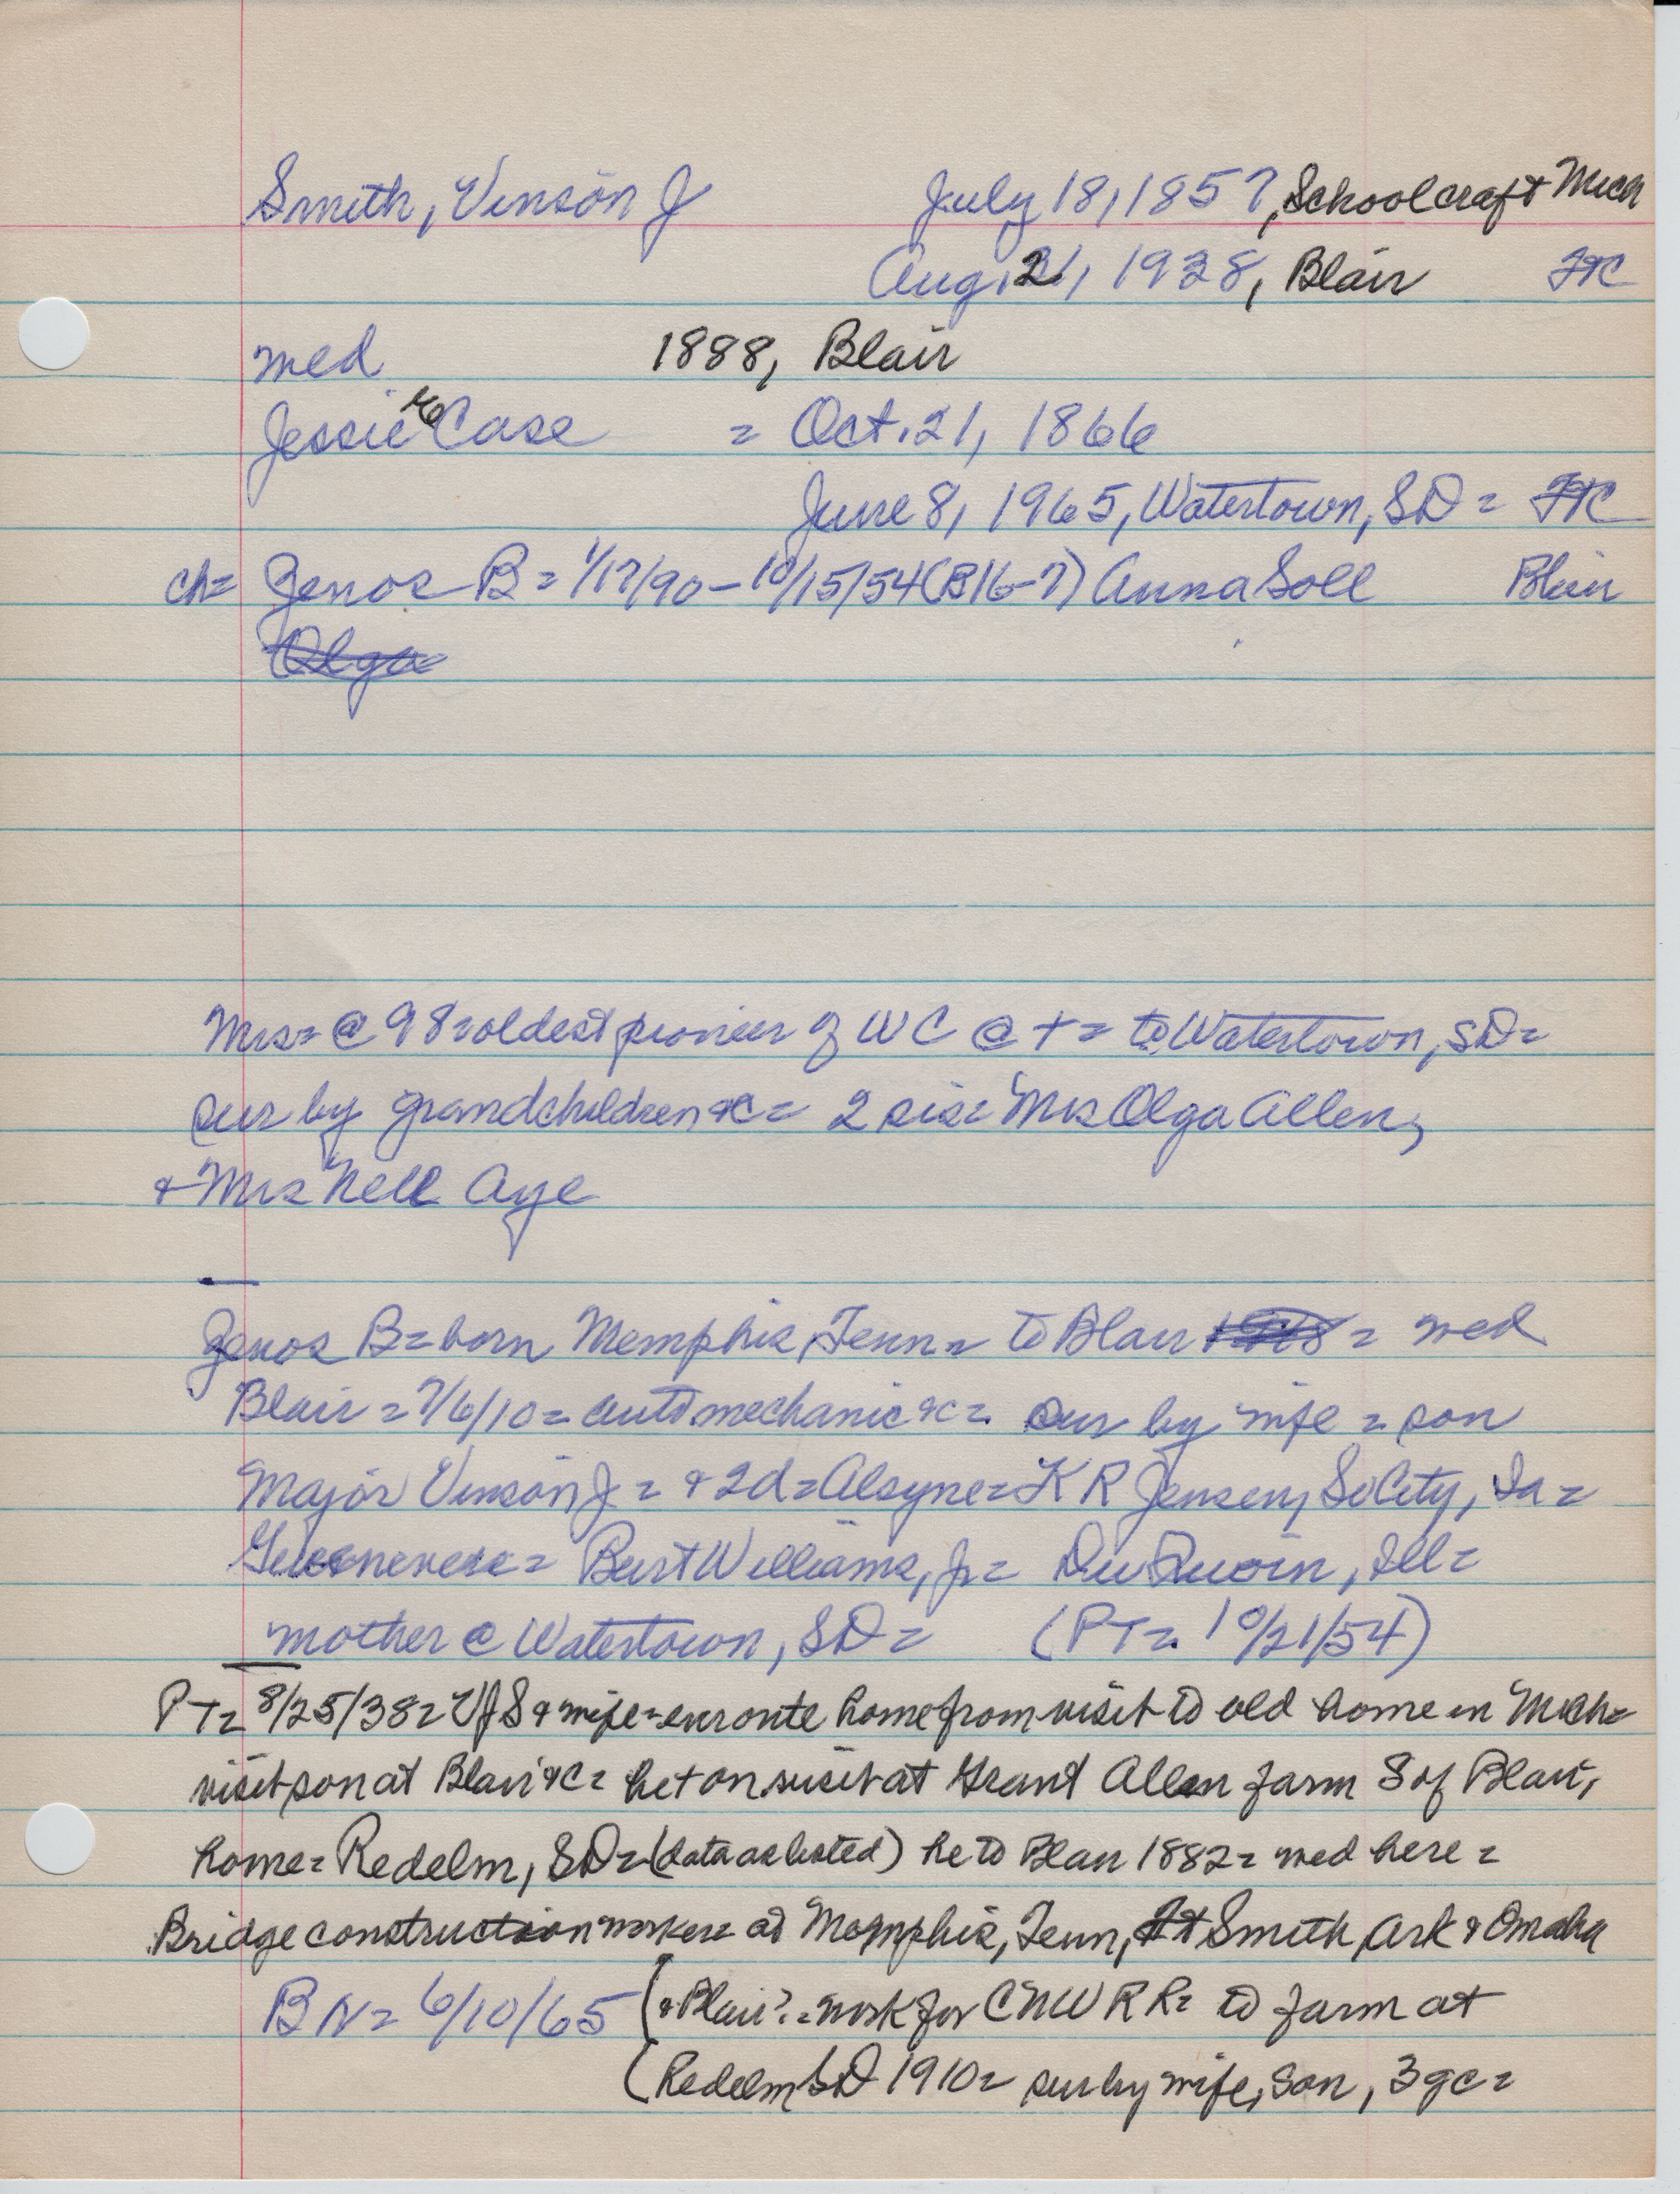 Smith, Vinson J July 18, 1857, Schoolcraft Mich
Aug. 21, 1938, Blair FC
med 1888, Blair
Jessie Case = Oct. 21, 1866
June 8, 1965, Watertown, SD = FC
ch= Zenos B = 1/17/90 - 10/15/54 (B16-7) Anna Soll Blair
Olga
Mrs = @ 98 = oldest pioneer of WC @ + = to Watertown, SD =
sur by grandchildren &c = 2 sis = Mrs Olga Allen,
& Mrs Nell Aye
Zenos B = born Memphis, Tenn = to Blair = med
Blair = 7/6/10 = auto mechanic &c = sur by wife = son
Major Vinson J = & 2d = Alsyne = K R Jensen, So City, Ia =
Burt Williams, Jr = Du Quoin, Ill =
mother @ Watertown, SD = (PT = 10/21/54)
PT = 8/25/38 = VJS & wife = enroute home from visit to old home in Mich =
visit son at Blair &c = he + on visit at Grant Allen farm S of Blair,
home = Redelm, SD = (data as listed) he to Blair 1882 = med here =
Bridge construction worker = at Memphis, Tenn, Ft Smith, Ark & Omaha
BN = 6/10/65 (& Blair? = work for CNW RR = to farm at
(Redelm SD 1910 = sur by wife, son, 3 gc =